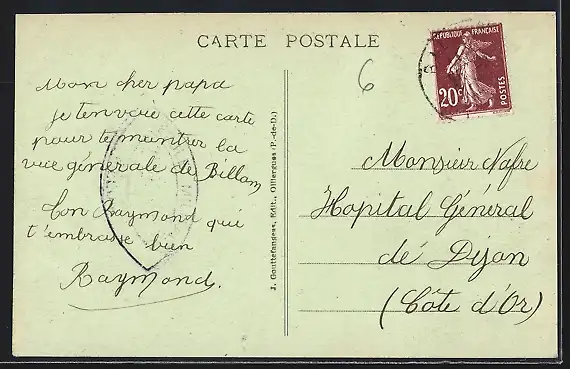 CARTE POSTALE
6
REPUBLIQUE FRANÇAISE
20c
POSTES
Mon cher papa
je tenvoie cette carte
pour te montrer la
vue générale de Billom
ton Raymond qui
t'embrasse bien
Raymond.
J. Gouttefangeas, Edit., Olliergues (P.-de-D.)
Monsieur Nafre
Hopital Général
de Dijon
(Côte d'Or)